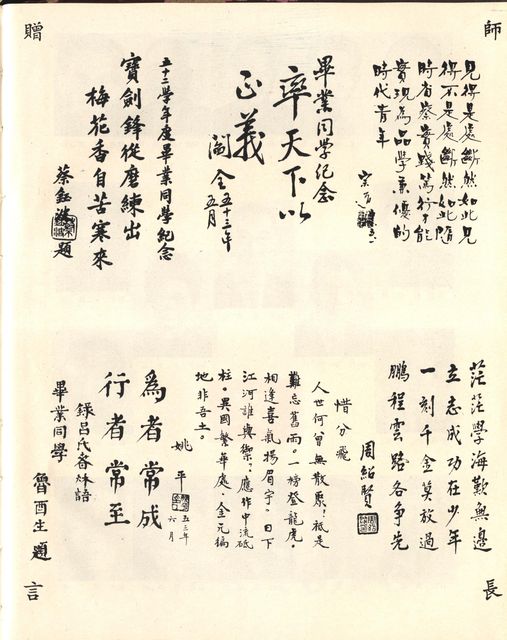 師
長
贈
言
見得是處斷然如此見
得不是處斷然如此隨
時省察實踐篤行才能
實現為品學兼優的
時代青年
畢業同學紀念
率天下以
正義
閻全 五十三年
五月
五十二學年度畢業同學紀念
寶劍鋒從磨練出
梅花香自苦寒來
蔡鈺 題
茫茫學海歎無邊
立志成功在少年
一刻千金莫放過
鵬程雲路各爭先
周紹賢
惜分飛
人世何曾無散聚?祗是
難忘舊雨。一榜登龍虎。
相逢喜氣揚眉宇。日下
江河誰與禦?應作中流砥
柱。異國繁華處。金元
地非吾土。
姚平 五三年
六月
為者常成
行者常至
錄呂氏春秋語
畢業同學
魯酉生題